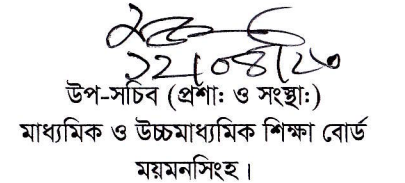 ১২/০৪/২০
উপ-সচিব (প্রশা: ও সংস্থা:)
মাধ্যমিক ও উচ্চমাধ্যমিক শিক্ষা বোর্ড
ময়মনসিংহ।